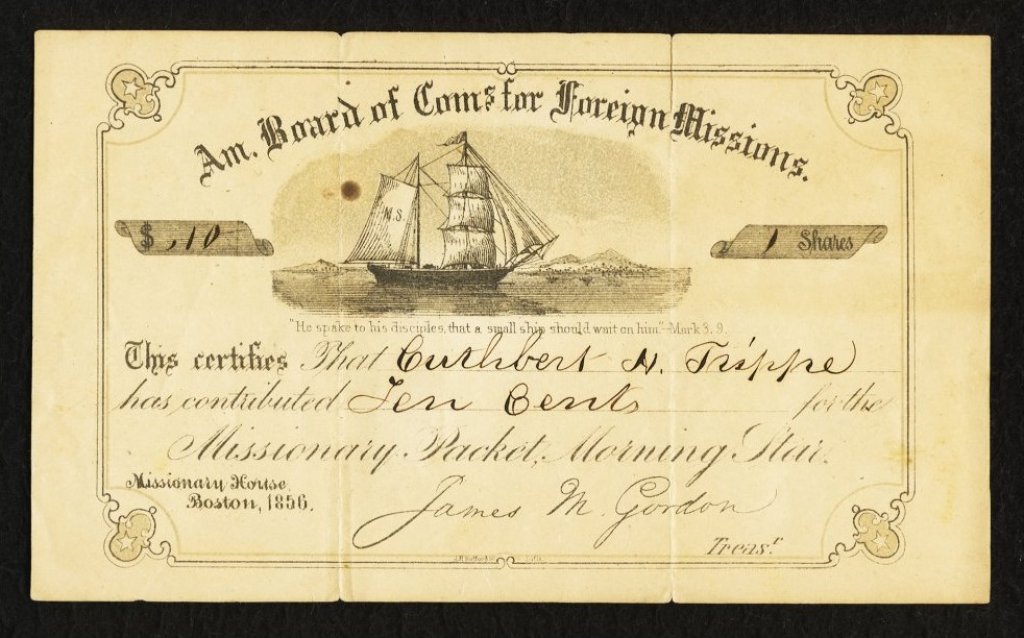 Am. Board of Coms for Foreign Missions.
M.S.
$ .10
1 Shares
"He spake to his disciples, that a small ship should wait on him."-Mark 3. 9.
This certifies That Cuthbert H. Trippe
has contributed Ten Cents for the
Missionary Packet, Morning Star.
Missionary House,
Boston, 1856.
James M. Gordon
Treasr.